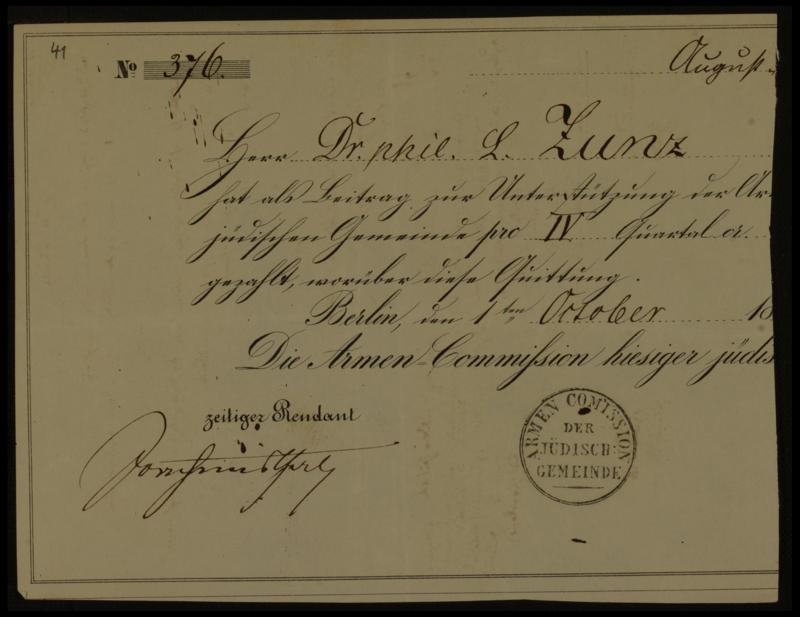 41
No 376.
August
Herr Dr. phil. L. Zunz
hat als Beitrag zur Unterstützung der Ar
jüdischen Gemeinde pro IV Quartal cr.
gezahlt, worüber diese Quittung.
Berlin, den 1ten October 18
Die Armen-Commission hiesiger jüdis
zeitiger Rendant
ARMEN COMISSION
DER
JÜDISCH:
GEMEINDE